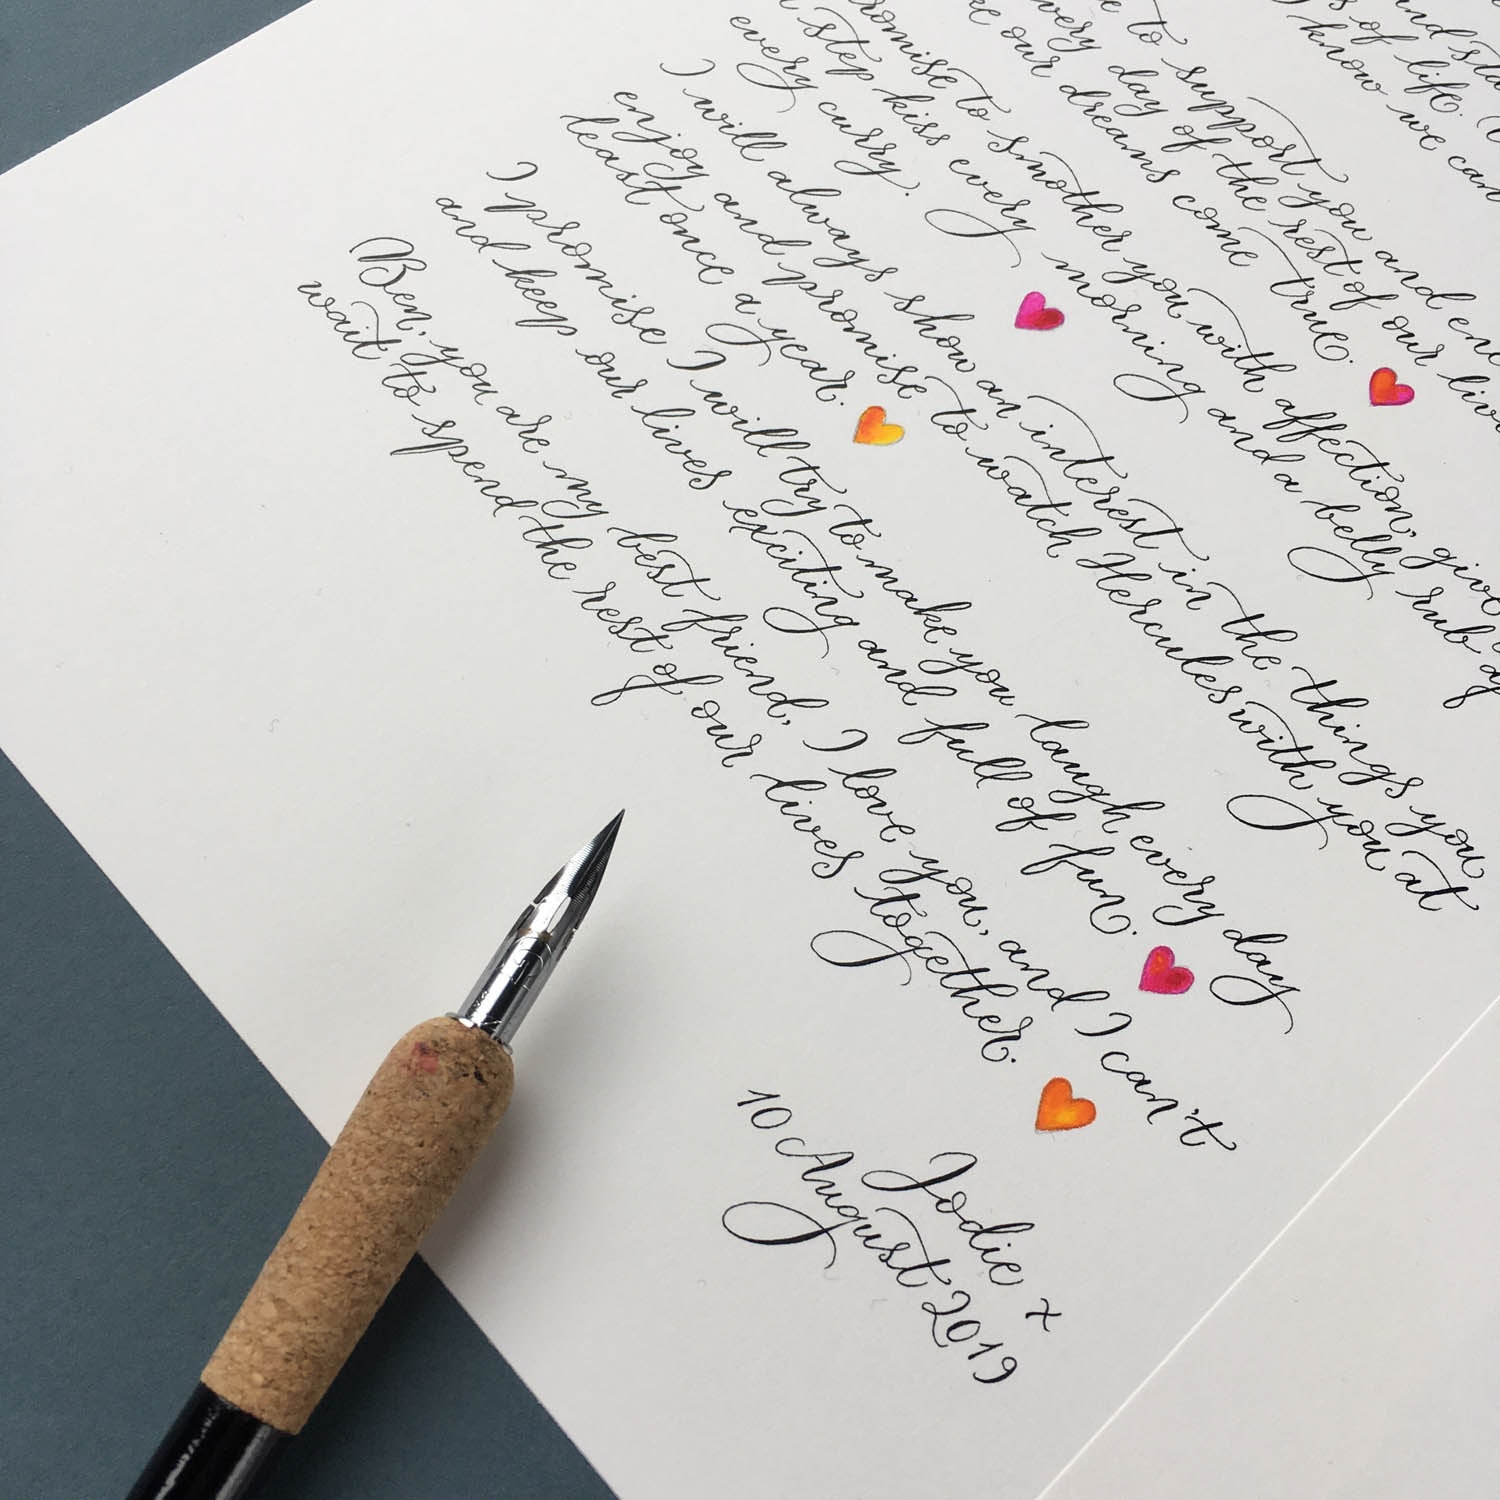 and sta
s of life.
I know we can
e to support you and enc
every day of the rest of our live
ke our dreams come true.
romise to smother you with affection, give
step kiss every morning and a belly rub af
every curry.
I will always show an interest in the things you
enjoy and promise to watch Hercules with you at
least once a year.
I promise I will try to make you laugh every day
and keep our lives exciting and full of fun.
Ben, you are my best friend, I love you, and I can't
wait to spend the rest of our lives together.
Jodie x
10 August 2019